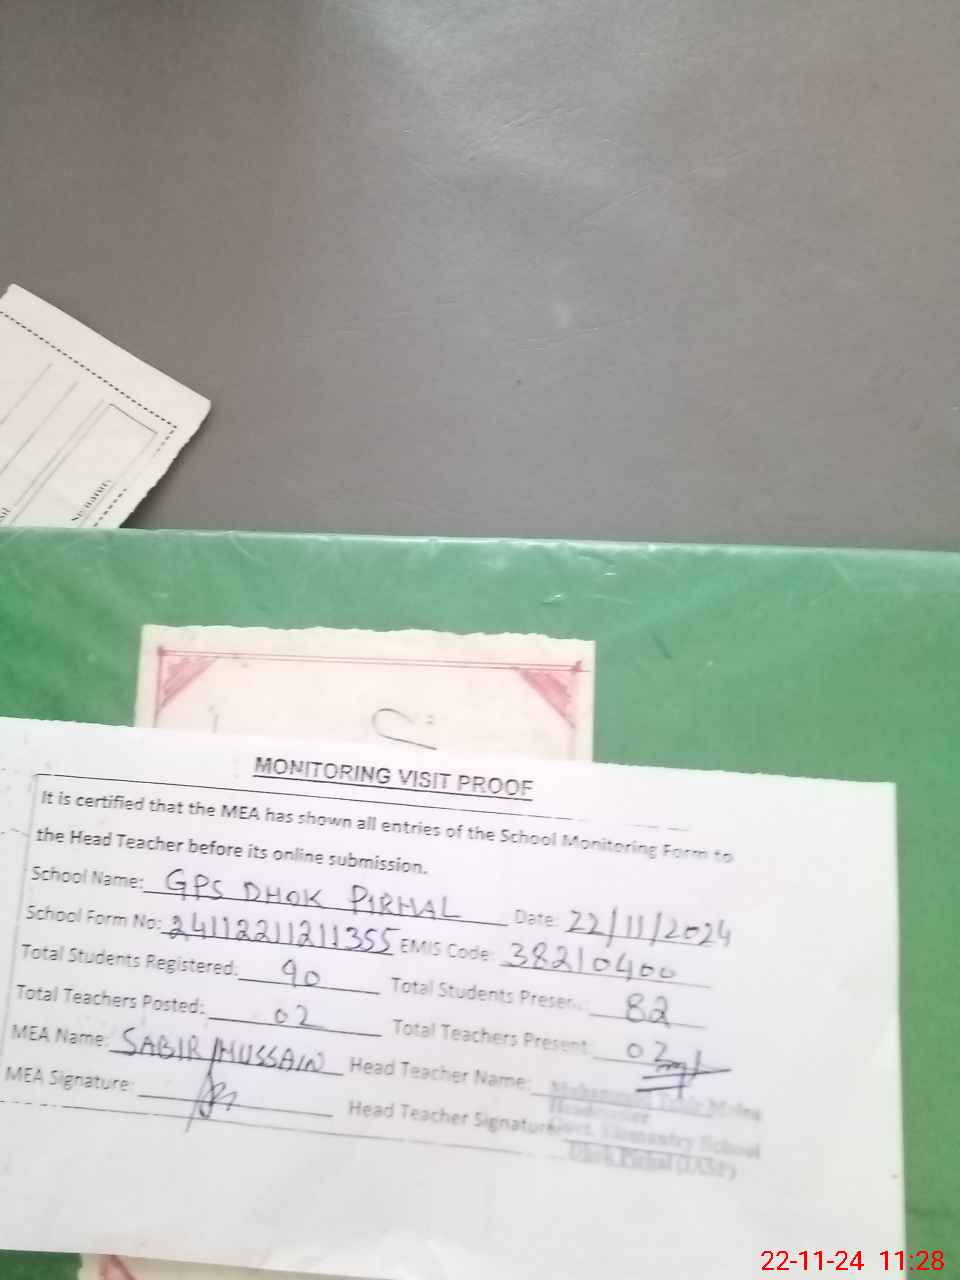 Signature
MONITORING VISIT PROOF
It is certified that the MEA has shown all entries of the School Monitoring Form to
the Head Teacher before its online submission.
School Name: GPS DHOK PIRHAL Date: 22/11/2024
School Form No: 24112211211355 EMIS Code: 38210400
Total Students Registered: 90 Total Students Present: 82
Total Teachers Posted: 02 Total Teachers Present: 02
MEA Name: SABIR HUSSAIN Head Teacher Name:
MEA Signature: Head Teacher Signature:
Headmaster
Govt. Elementry School
Dhok Pirhal
22-11-24 11:28